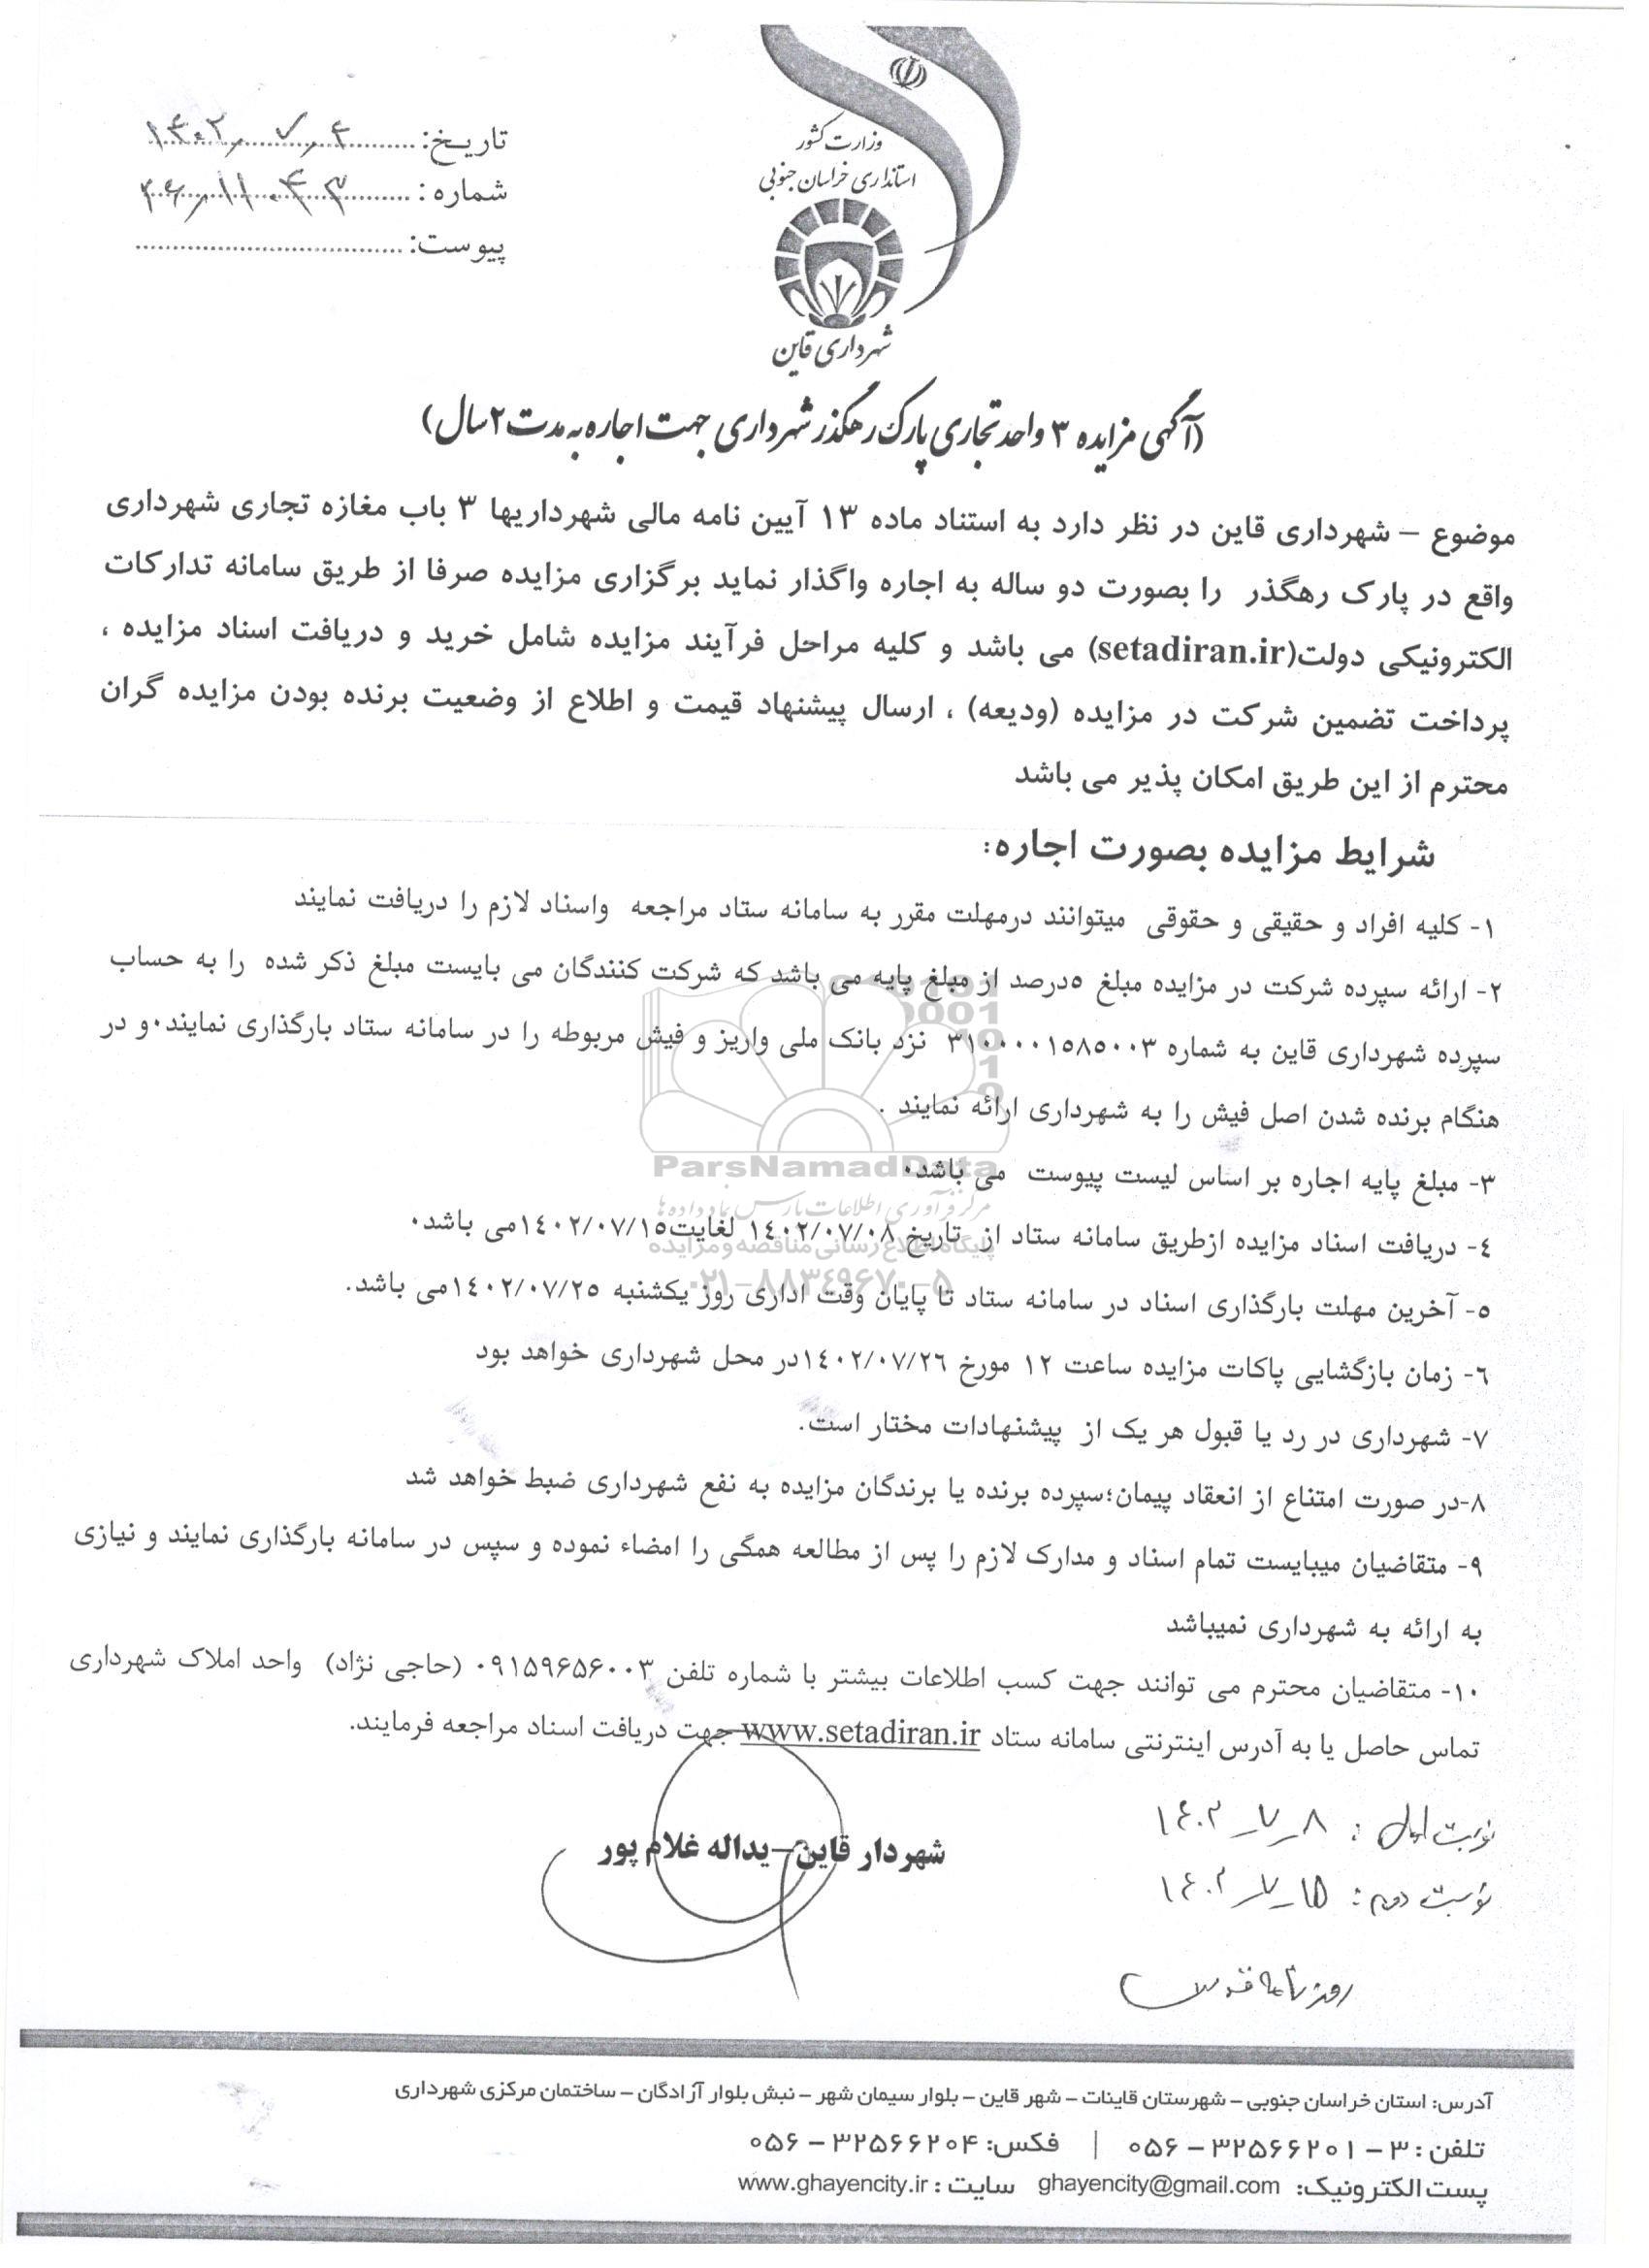 وزارت کشور
استانداری خراسان جنوبی
شهرداری قاین
تاریخ: ۱۴۰۲٫۷٫۴
شماره: ۲۶٫۱۱۰۴۳
پیوست:
(آگهی مزایده ۳ واحد تجاری پارک رهگذر شهرداری جهت اجاره به مدت ۲ سال)
موضوع – شهرداری قاین در نظر دارد به استناد ماده ۱۳ آیین نامه مالی شهرداریها ۳ باب مغازه تجاری شهرداری
واقع در پارک رهگذر را بصورت دو ساله به اجاره واگذار نماید برگزاری مزایده صرفا از طریق سامانه تدارکات
الکترونیکی دولت(setadiran.ir) می باشد و کلیه مراحل فرآیند مزایده شامل خرید و دریافت اسناد مزایده ،
پرداخت تضمین شرکت در مزایده (ودیعه) ، ارسال پیشنهاد قیمت و اطلاع از وضعیت برنده بودن مزایده گران
محترم از این طریق امکان پذیر می باشد
شرایط مزایده بصورت اجاره:
۱- کلیه افراد و حقیقی و حقوقی میتوانند درمهلت مقرر به سامانه ستاد مراجعه واسناد لازم را دریافت نمایند
۲- ارائه سپرده شرکت در مزایده مبلغ ۵درصد از مبلغ پایه می باشد که شرکت کنندگان می بایست مبلغ ذکر شده را به حساب
سپرده شهرداری قاین به شماره ۳۱۰۰۰۰۱۵۸۵۰۰۳ نزد بانک ملی واریز و فیش مربوطه را در سامانه ستاد بارگذاری نمایند۰و در
هنگام برنده شدن اصل فیش را به شهرداری ارائه نمایند .
۳- مبلغ پایه اجاره بر اساس لیست پیوست می باشد۰
۴- دریافت اسناد مزایده ازطریق سامانه ستاد از تاریخ ۱۴۰۲/۰۷/۰۸ لغایت۱۴۰۲/۰۷/۱۵می باشد۰
۵- آخرین مهلت بارگذاری اسناد در سامانه ستاد تا پایان وقت اداری روز یکشنبه ۱۴۰۲/۰۷/۲۵می باشد.
۶- زمان بازگشایی پاکات مزایده ساعت ۱۲ مورخ ۱۴۰۲/۰۷/۲۶در محل شهرداری خواهد بود
۷- شهرداری در رد یا قبول هر یک از پیشنهادات مختار است.
۸-در صورت امتناع از انعقاد پیمان؛سپرده برنده یا برندگان مزایده به نفع شهرداری ضبط خواهد شد
۹- متقاضیان میبایست تمام اسناد و مدارک لازم را پس از مطالعه همگی را امضاء نموده و سپس در سامانه بارگذاری نمایند و نیازی
به ارائه به شهرداری نمیباشد
۱۰- متقاضیان محترم می توانند جهت کسب اطلاعات بیشتر با شماره تلفن ۰۹۱۵۹۶۵۶۰۰۳ (حاجی نژاد) واحد املاک شهرداری
تماس حاصل یا به آدرس اینترنتی سامانه ستاد www.setadiran.ir جهت دریافت اسناد مراجعه فرمایند.
ParsNamadData
مرکز فرآوری اطلاعات پارس نماد داده ها
پایگاه اطلاع رسانی مناقصه و مزایده
۰۲۱-۸۸۳۴۹۶۷۰-۵
نوبت اول : ۸-۷-۱۴۰۲
نوبت دوم : ۱۵-۷-۱۴۰۲
روزنامه قدس
شهردار قاین–یداله غلام پور
آدرس: استان خراسان جنوبی – شهرستان قاینات – شهر قاین – بلوار سیمان شهر – نبش بلوار آزادگان – ساختمان مرکزی شهرداری
تلفن : ۳ – ۳۲۵۶۶۲۰۱ – ۰۵۶ | فکس: ۳۲۵۶۶۲۰۴ – ۰۵۶
پست الکترونیک: ghayencity@gmail.com سایت : www.ghayencity.ir